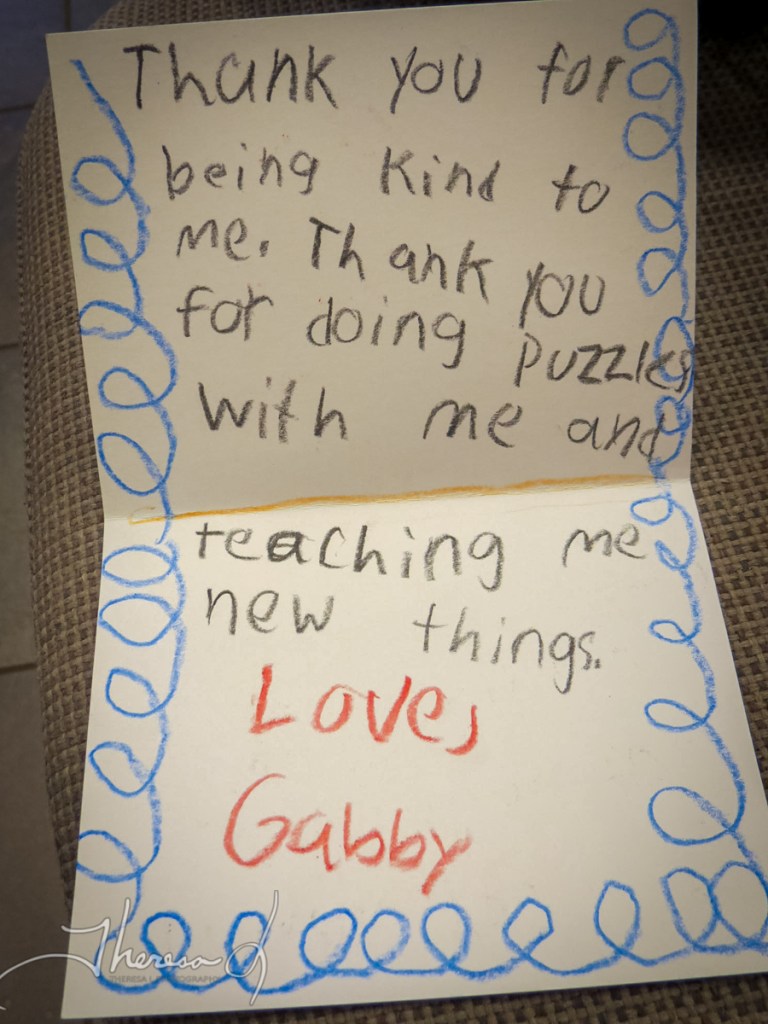 Thank you for
being kind to
me. Thank you
for doing puzzles
with me and
teaching me
new things.
Love,
Gabby
Theresa L